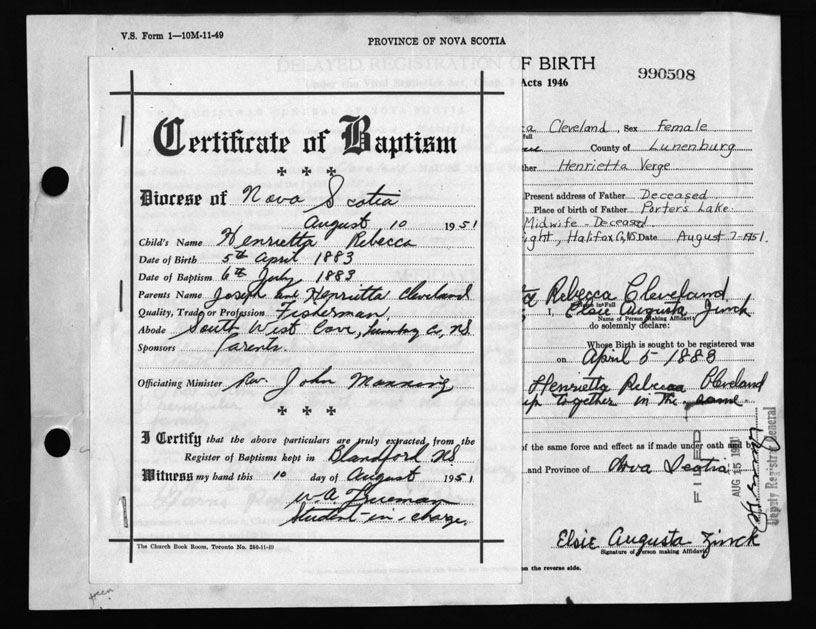 V.S. Form 1—10M-11-49
PROVINCE OF NOVA SCOTIA
DELAYED REGISTRATION
Certificate of Baptism
Diocese of Nova Scotia
August 10 1951
Child's Name Henrietta Rebecca
Date of Birth 5th April 1883
Date of Baptism 6th July 1883
Parents Name Joseph and Henrietta Cleveland
Quality, Trade or Profession Fisherman
Abode South West Cove, Lunenburg Co, N.S.
Sponsors Parents.
Officiating Minister Rev. John Manning
I Certify that the above particulars are truly extracted from the
Register of Baptisms kept in Blandford NS
Witness my hand this 10 day of August 1951
W.A. Freeman
Student-in-charge.
The Church Book Room, Toronto No. 250-11-49
F BIRTH
Acts 1946
990508
a Cleveland, Sex Female
County of Lunenburg
her Henrietta Verge
Present address of Father Deceased
Place of birth of Father Porters Lake.
Midwife - Deceased
ight, Halifax Co, NS Date August 7-1951.
Rebecca Cleveland
I, Elsie Augusta Zinck
Name of Person Making Affidavit
do solemnly declare:
Whose Birth is sought to be registered was
on April 5-1883
Henrietta Rebecca Cleveland
up together in the same
of the same force and effect as if made under oath and by
and Province of Nova Scotia
FILED
AUG 15 1951
Deputy Registrar General
Elsie Augusta Zinck
Signature of Person making Affidavit
on the reverse side.